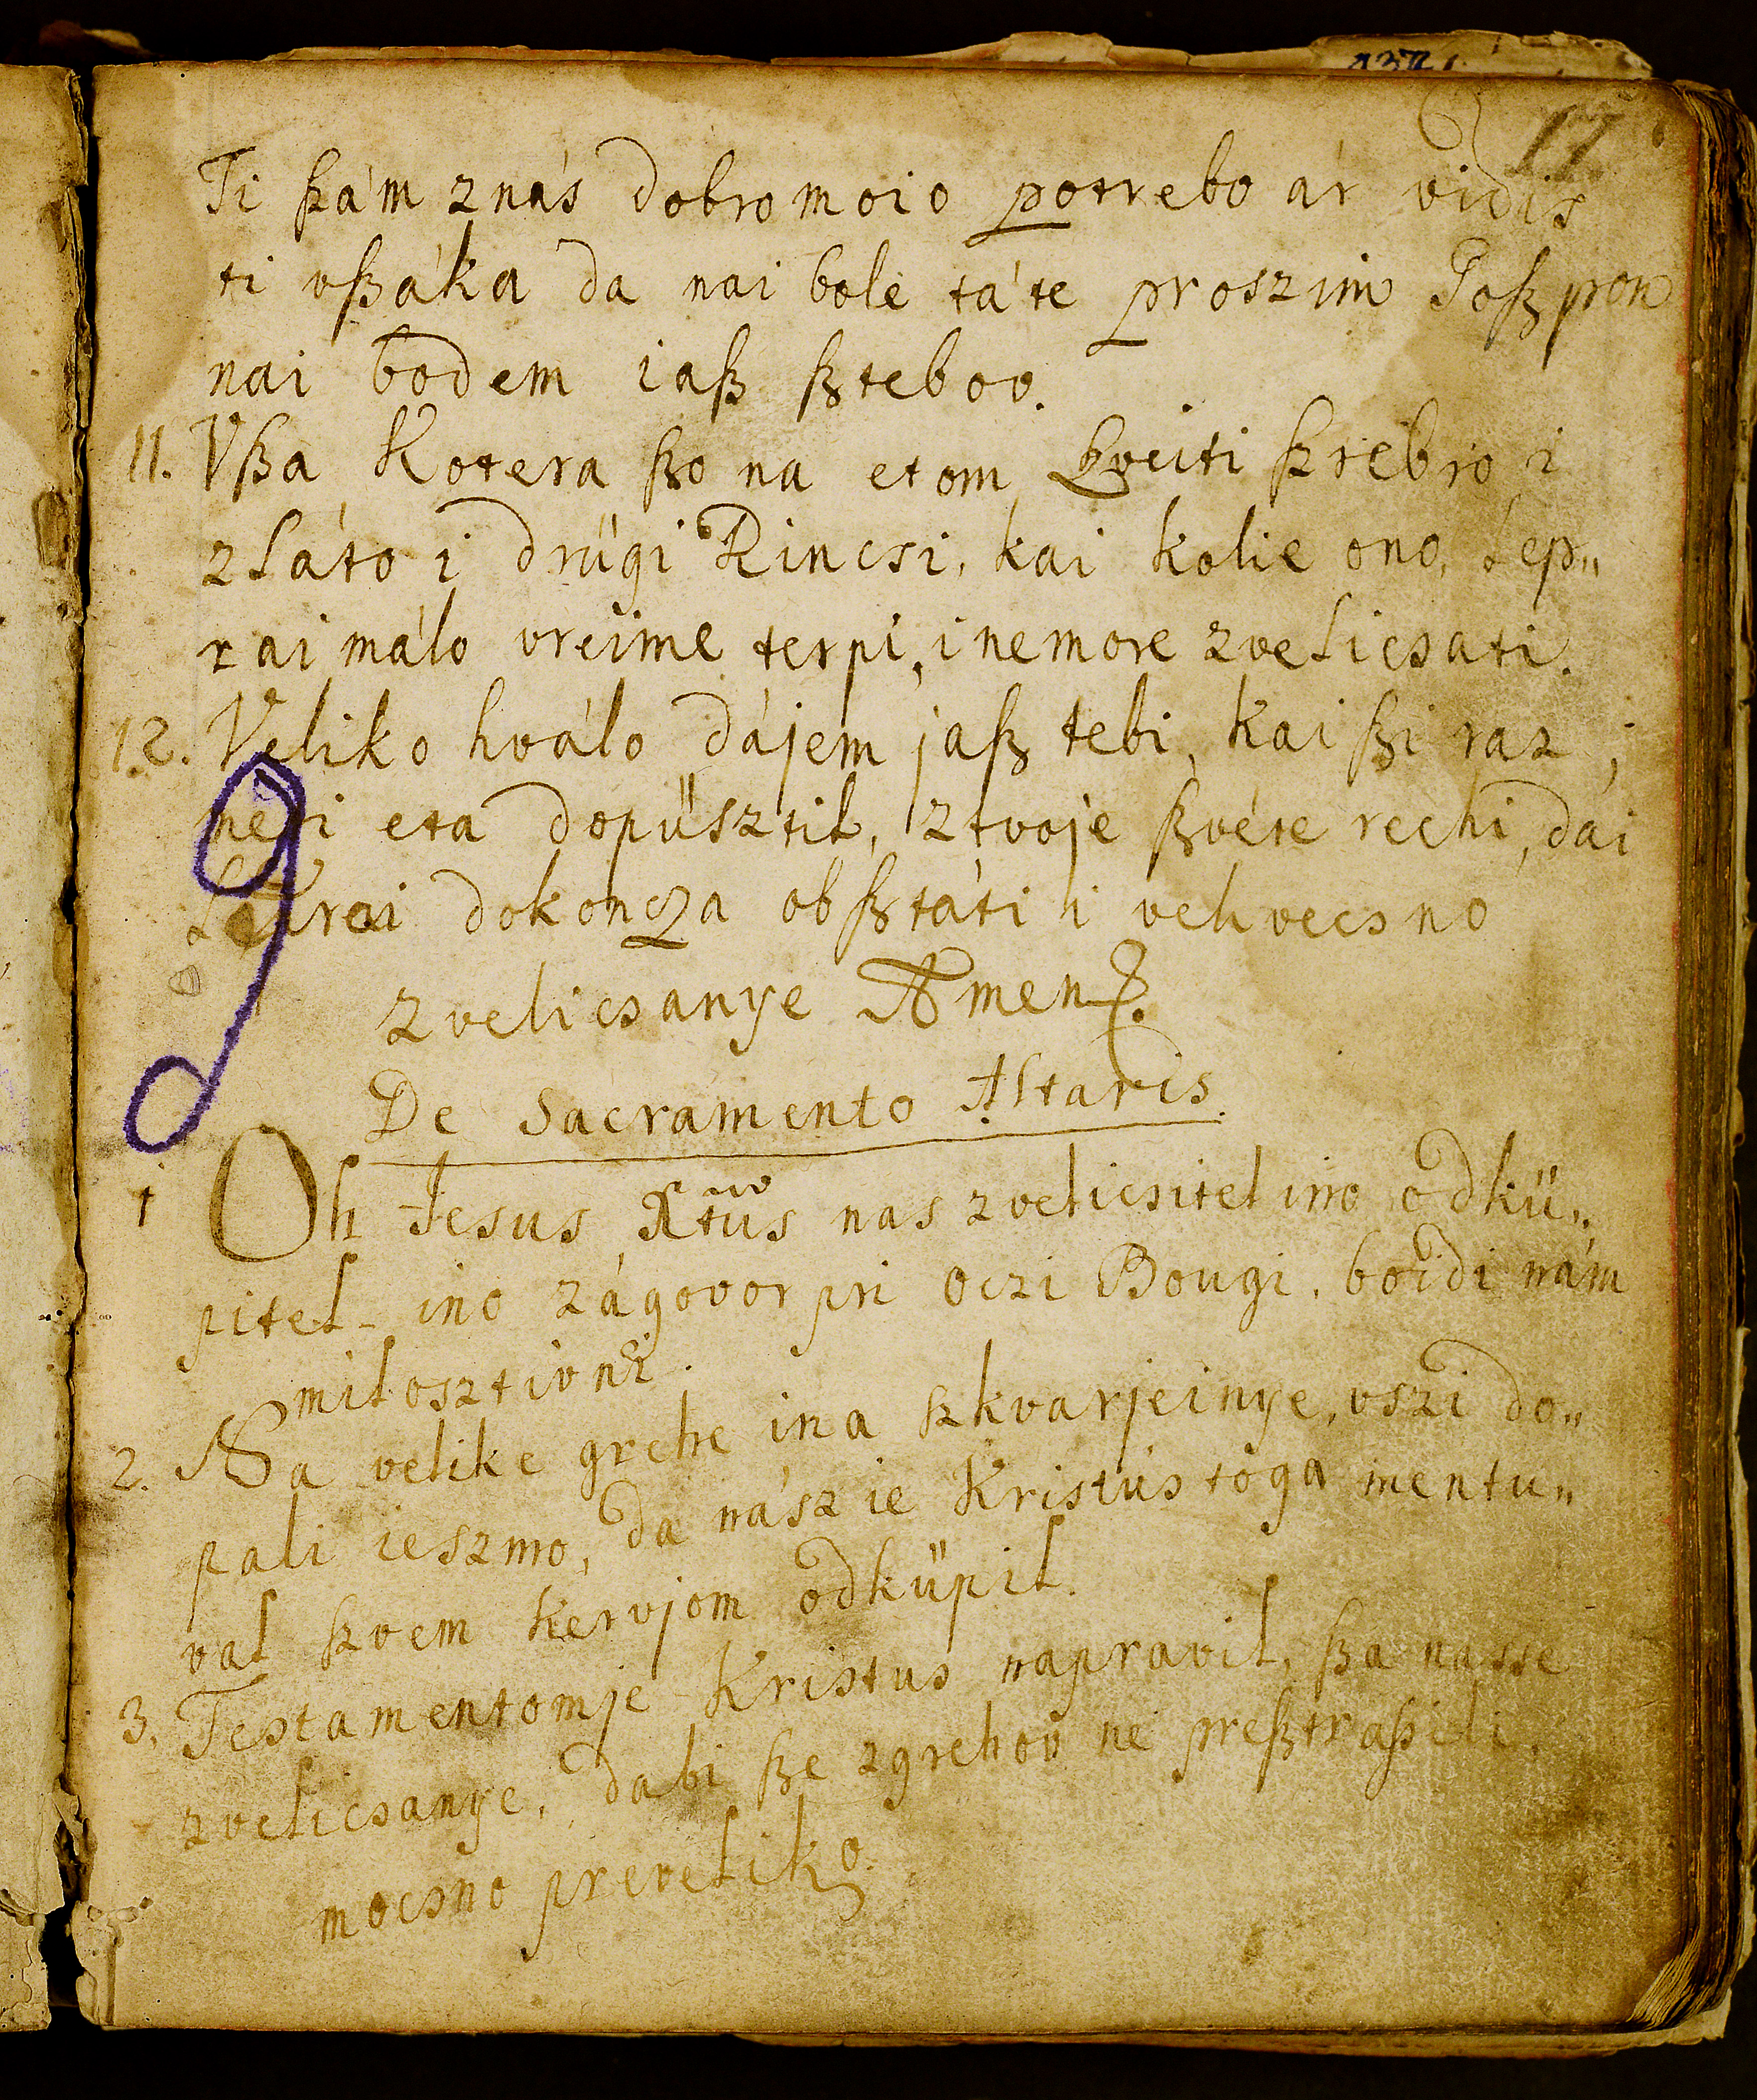 17.
Ti ßám znás dobro moio potrebo ár vidis
ti vßáka da nai bole tá te proszim Goßpon
nai bodem iaß ßtebov.
11. Vßa Kotera ßo na etom ßveiti ßrebro i
zláto i drügi Rincsi, kai kolie ono, lep„
rai málo vreime terpi, i nemore zvelicsati.
12. Veliko hválo dájem jaß tebi, kai ßi raz„
meti eta dopüsztil, ztvoje ßvéte rechi, dái
dokoncza obßtáti i veh vecsno
zvelicsanye Amen.
De Sacramento Altaris.
1 Oh Jesus Xtus nas zvelicsitel ino odkü„
pitel ino zágovor pri Oczi Bougi, boidi nám
milosztivni.
2. Na velike grehe i na szkvarjeinye, vszi do„
pali ieszmo, da nász ie Kristus toga mentu„
val szvem kervjom odküpil.
3. Testamentomje Kristus napravil, ßa nasse
zvelicsanye, dabi ße zgrehov ne preßtraßili,
mocsno preveliko.